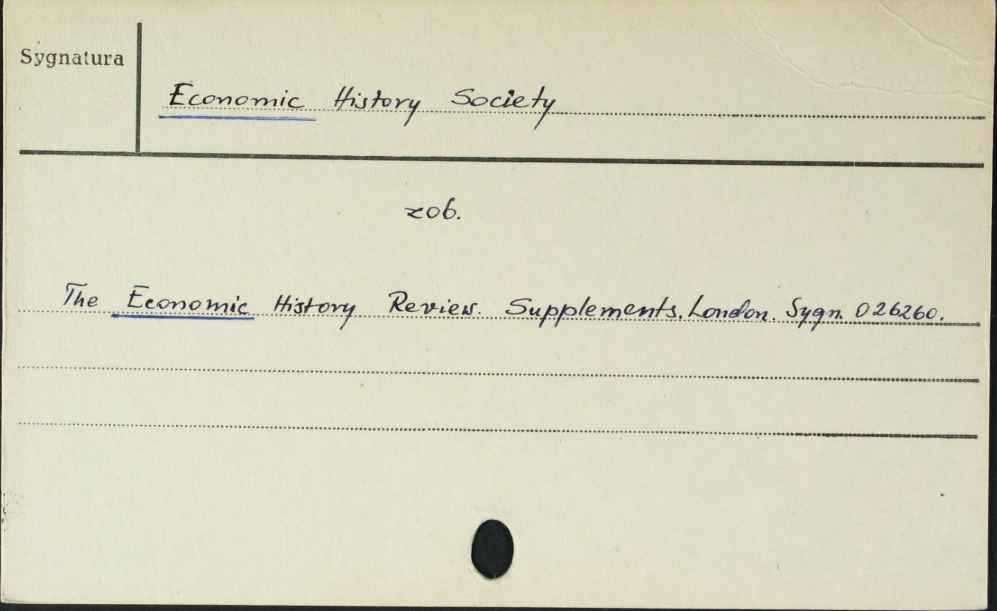 Sygnatura
Economic History Society
zob.
The Economic History Review. Supplements. London. Sygn. 026260.